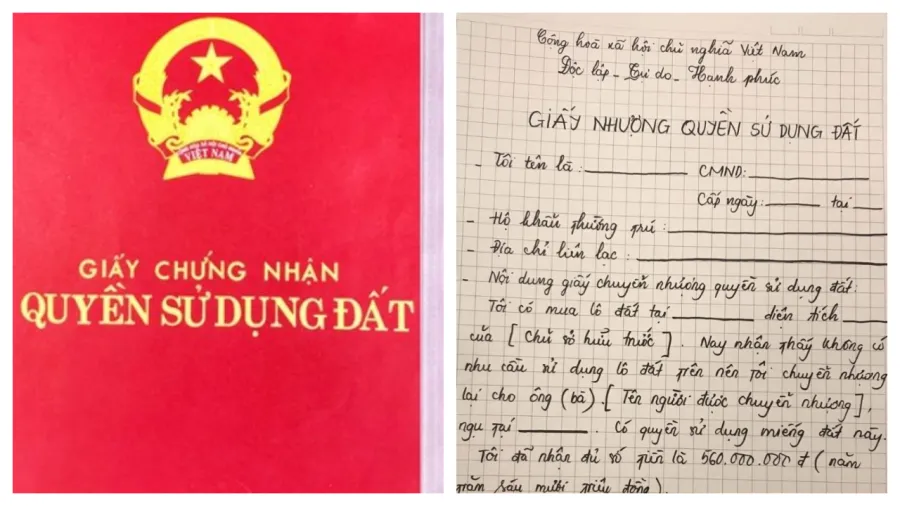 VIỆT NAM
GIẤY CHỨNG NHẬN
QUYỀN SỬ DỤNG ĐẤT
Cộng hoà xã hội chủ nghĩa Việt Nam
Độc lập - Tự do - Hạnh phúc
GIẤY NHƯỢNG QUYỀN SỬ DỤNG ĐẤT
- Tôi tên là: CMND:
Cấp ngày: tại
- Hộ khẩu thường trú:
- Địa chỉ liên lạc:
- Nội dung giấy chuyển nhượng quyền sử dụng đất:
Tôi có mua lô đất tại diện tích
của [Chủ sở hữu trước]. Nay nhận thấy không có
nhu cầu sử dụng lô đất trên nên tôi chuyển nhượng
lại cho ông (bà).[Tên người được chuyển nhượng],
ngụ tại . Có quyền sử dụng miếng đất này.
Tôi đã nhận đủ số tiền là 560.000.000 đ (năm
trăm sáu mươi triệu đồng).